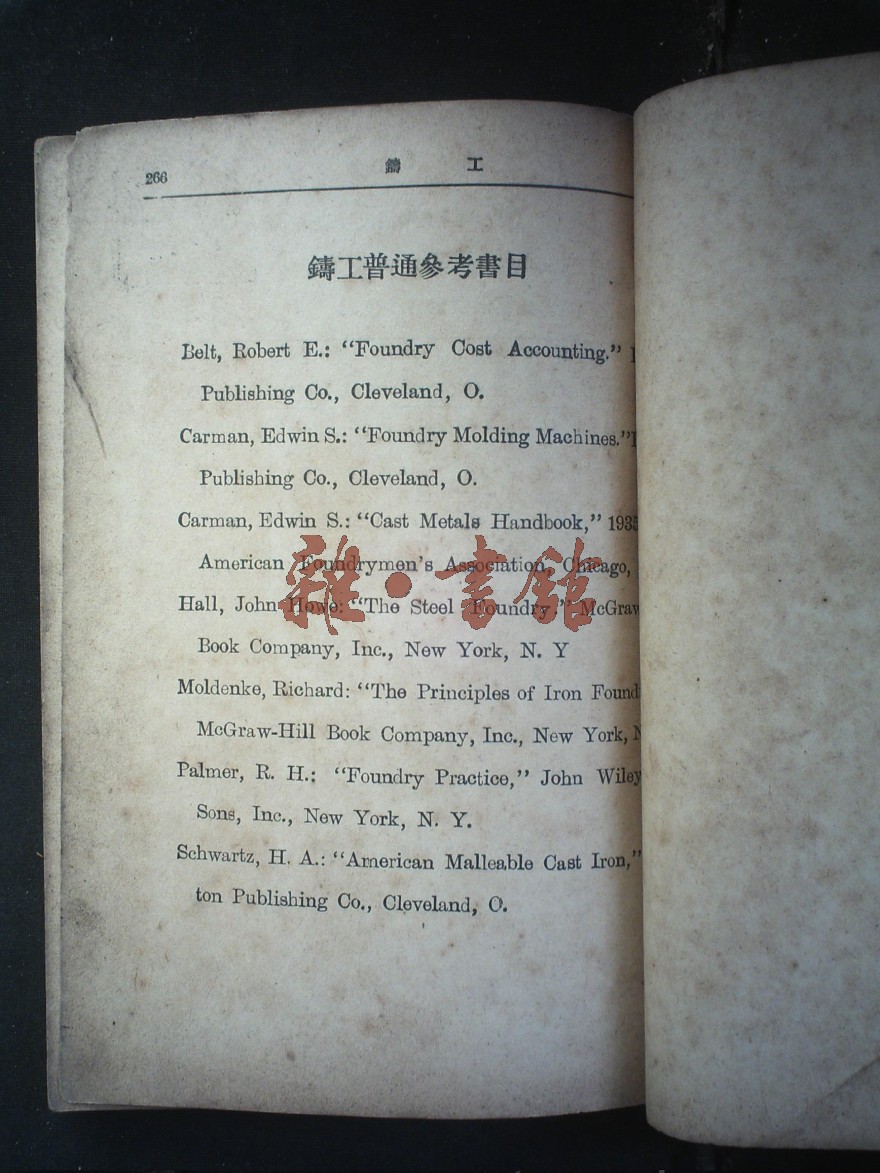 266
鑄 工
鑄工普通參考書目
Belt, Robert E.: “Foundry Cost Accounting.”
Publishing Co., Cleveland, O.
Carman, Edwin S.: “Foundry Molding Machines.”
Publishing Co., Cleveland, O.
Carman, Edwin S.: “Cast Metals Handbook,” 1935
American Foundrymen's Association, Chicago,
Hall, John Howe: “The Steel Foundry.” McGraw
Book Company, Inc., New York, N. Y
Moldenke, Richard: “The Principles of Iron Found
McGraw-Hill Book Company, Inc., New York,
Palmer, R. H.: “Foundry Practice,” John Wiley
Sons, Inc., New York, N. Y.
Schwartz, H. A.: “American Malleable Cast Iron,”
ton Publishing Co., Cleveland, O.
雜·書館